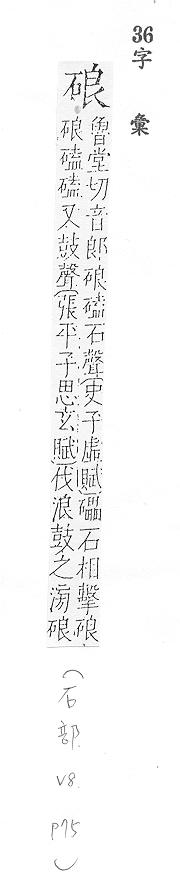 36字彙
硠
魯堂切音郎硠磕石聲(史子虛賦)礧石相擊硠
硠磕磕又鼓聲(張平子思玄賦)伐浪鼓之硠
(石部 V8. P75)